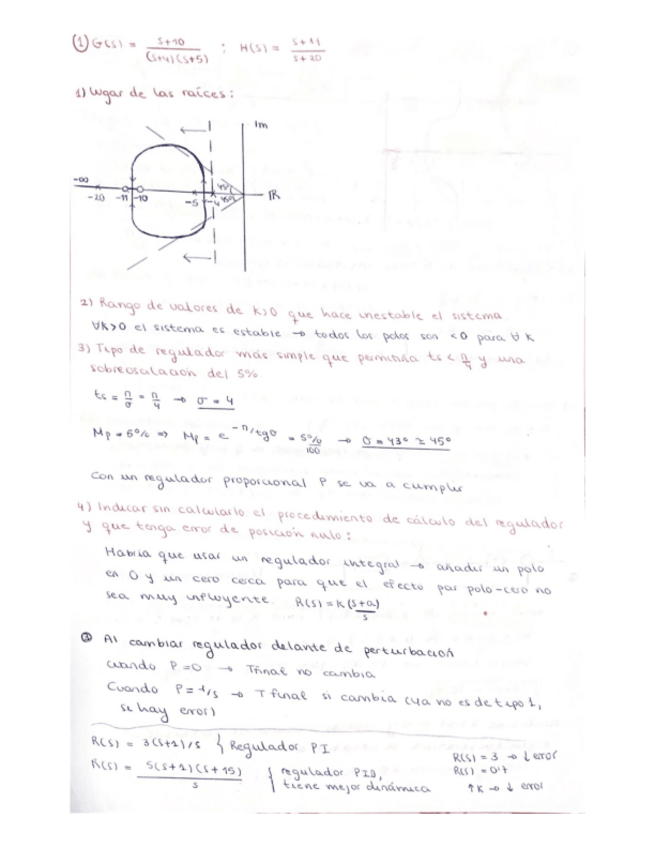 ① G(s) = s+10 / (s+4)(s+5) ; H(s) = s+11 / s+20
1) Lugar de las raíces:
Im
-∞
45º
45º
-20 -11 -10 -5 -4 IR
2) Rango de valores de K>0 que hace inestable el sistema
∀K>0 el sistema es estable → todos los polos son <0 para ∀ K
3) Tipo de regulador más simple que permitiría ts < π/4 y una
sobreoscilación del 5%
ts = π/σ = π/4 → σ = 4
Mp = 5% ⇒ Mp = e^-π/tgθ = 5%/100 → θ = 43° ≃ 45°
Con un regulador proporcional P se va a cumplir
4) Indicar sin calcularlo el procedimiento de cálculo del regulador
y que tenga error de posición nulo:
Habría que usar un regulador integral → añadir un polo
en 0 y un cero cerca para que el efecto par polo-cero no
sea muy influyente. R(s) = K (s+a)/s
② Al cambiar regulador delante de perturbación
Cuando P=0 → Tfinal no cambia
Cuando P=1/s → T final si cambia (ya no es de tipo 1,
se hay error)
R(s) = 3(s+1)/s } Regulador PI
R(s) = 5(s+1)(s+15) / s { regulador PID,
tiene mejor dinámica
R(s) = 3 → ↓ error
R(s) = 0'7
↑K → ↓ error